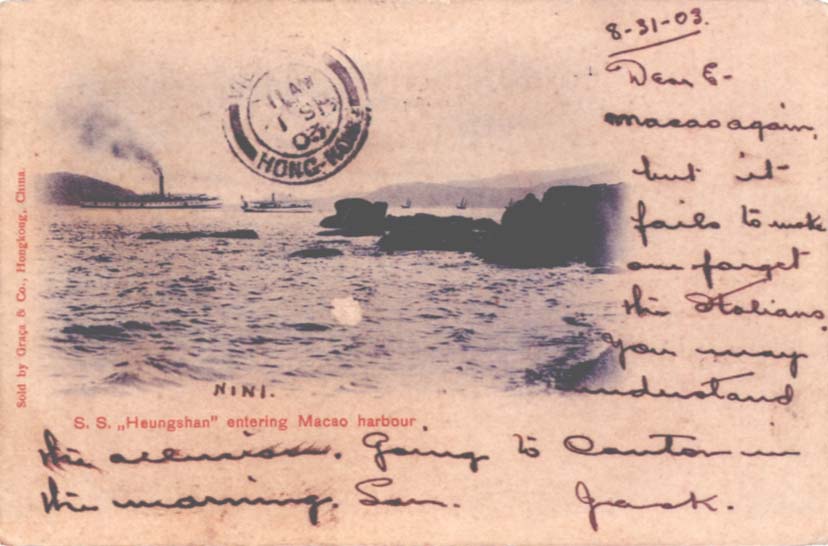 8-31-03.
Dear E-
Macao again,
but it
fails to make
one forget
the Italians.
You may
understand
the allusion. Going to Canton in
the morning. Jack.
NINI.
S. S. „Heungshan" entering Macao harbour
Sold by Graça & Co., Hongkong, China.
VIC
11 AM
1 SP
03
HONG-KONG